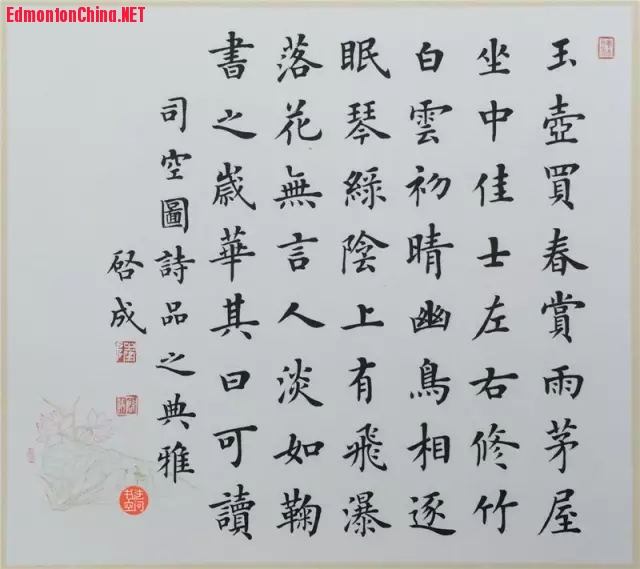 EdmontonChina.NET
玉壺買春賞雨茅屋
坐中佳士左右修竹
白雲初晴幽鳥相逐
眠琴綠陰上有飛瀑
落花無言人淡如鞠
書之歲華其曰可讀
司空圖詩品之典雅
啓成